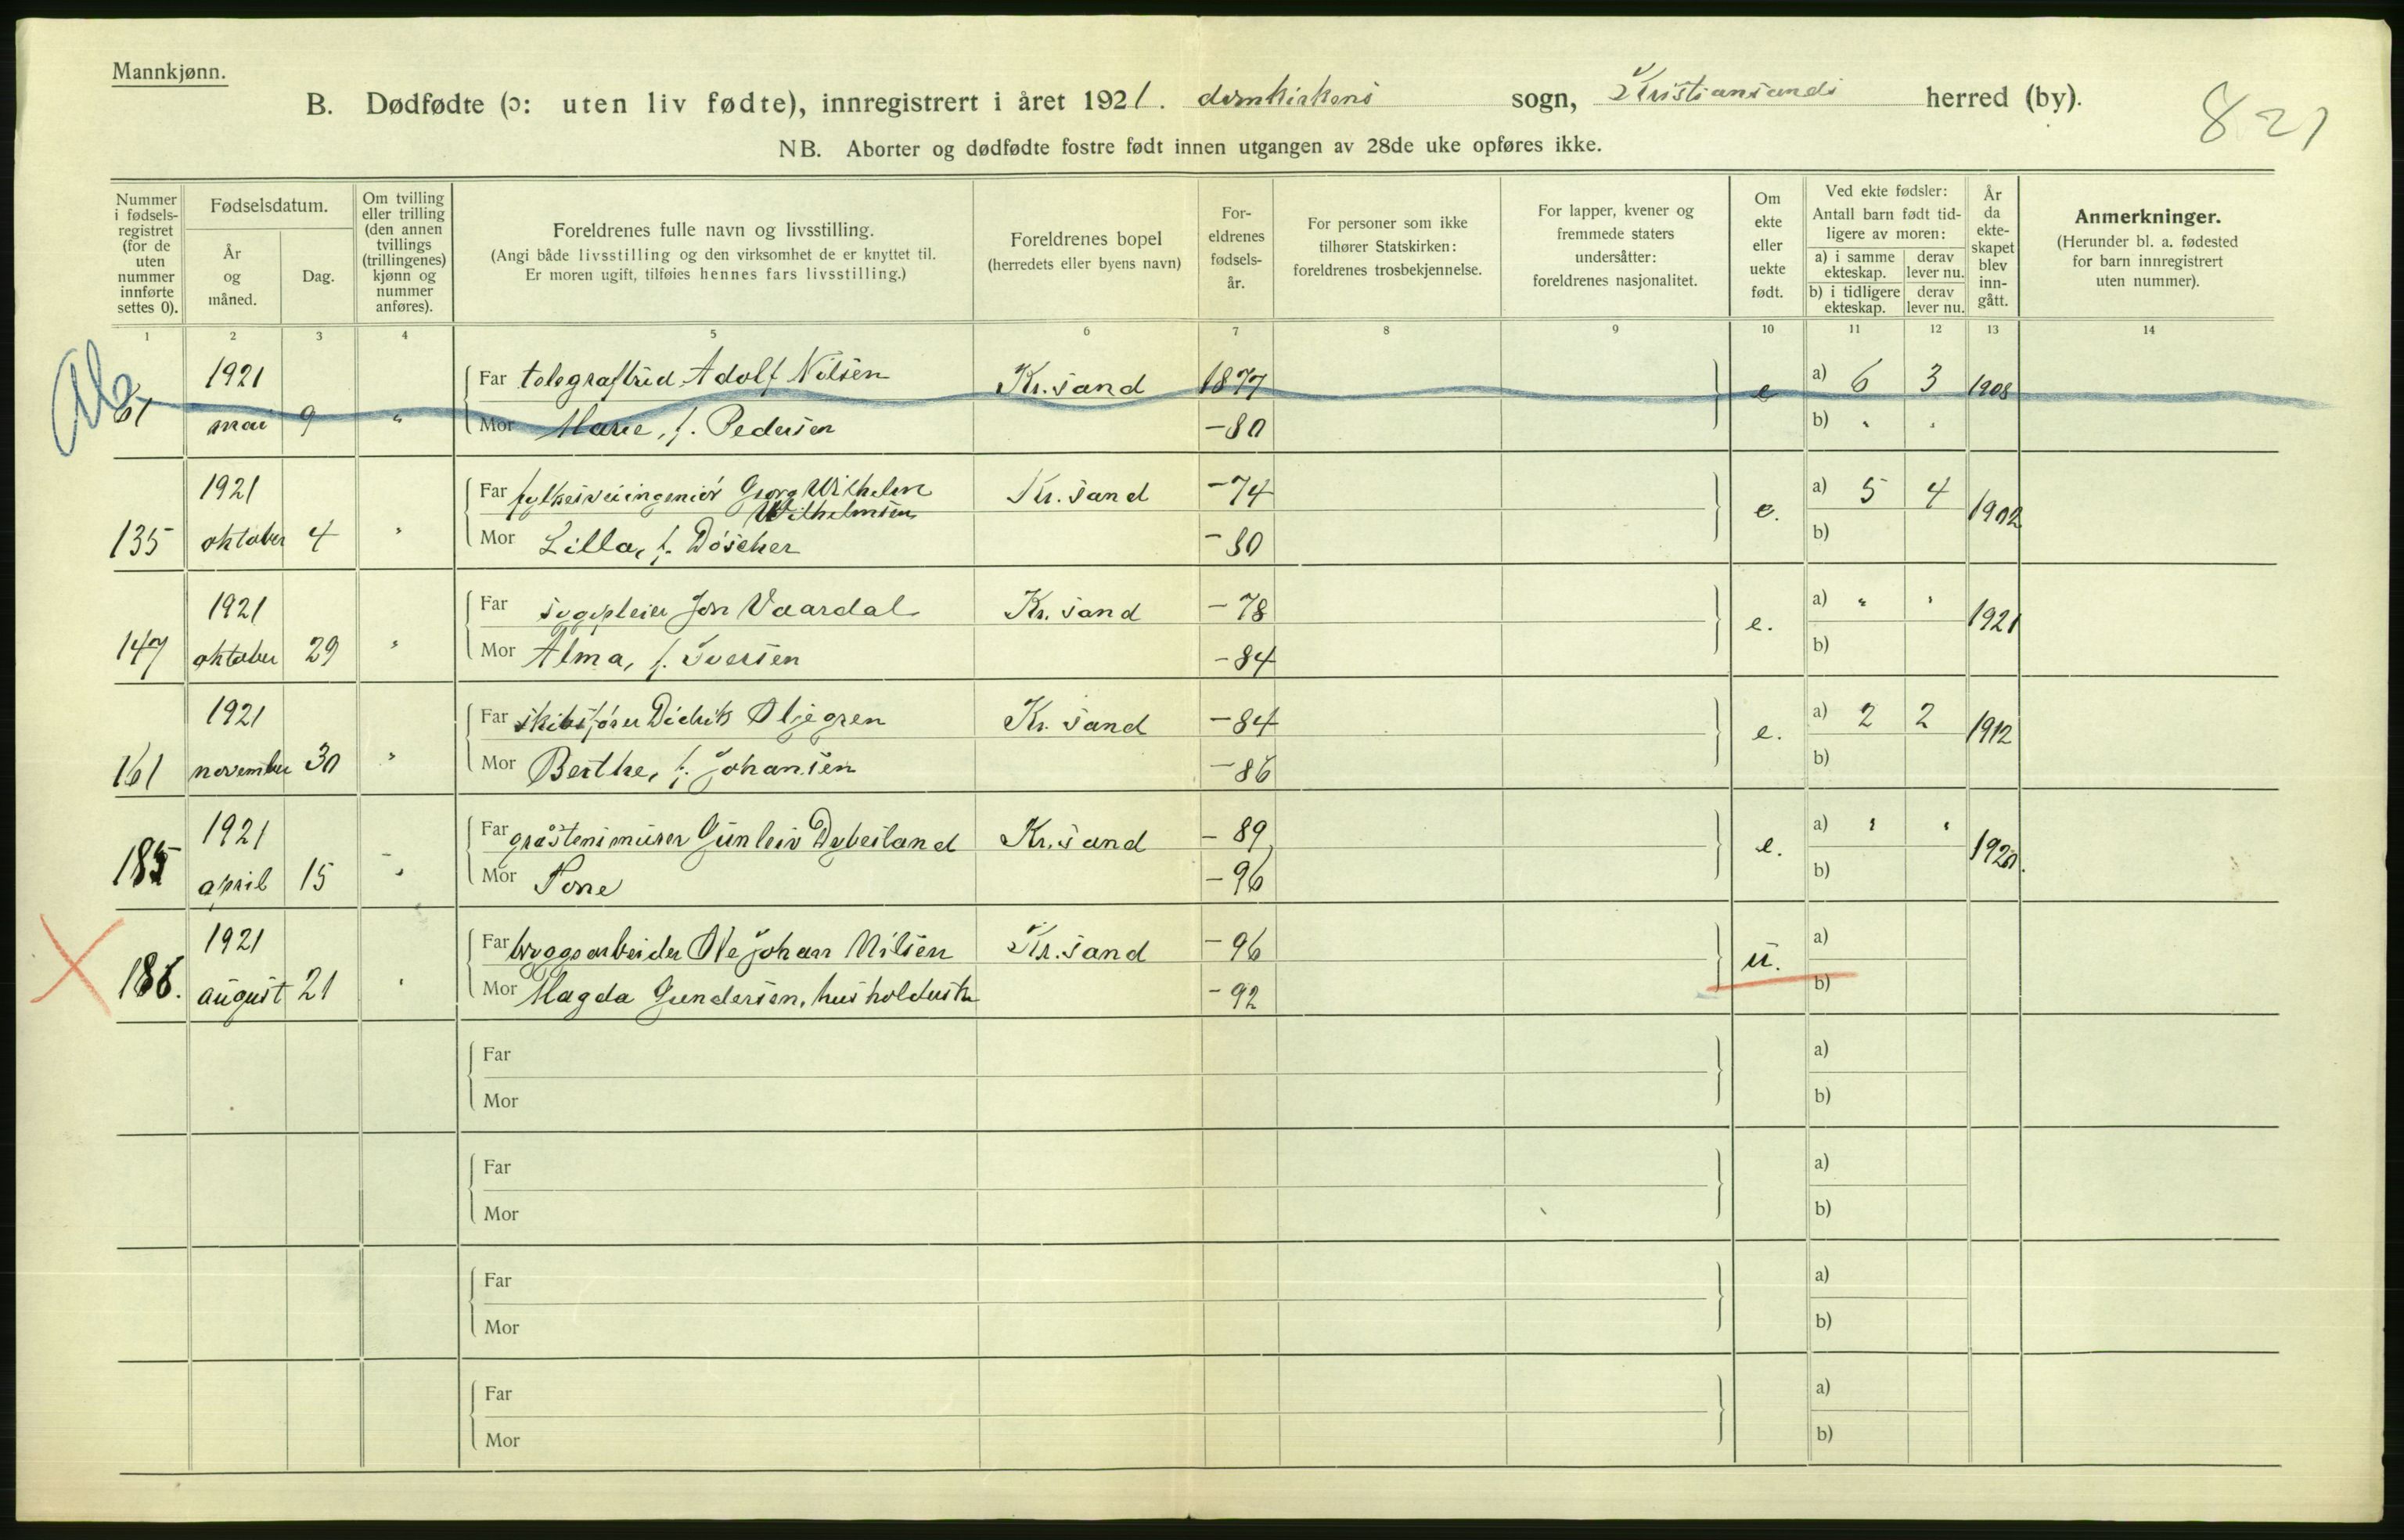 Mannkjønn.
B. Dødfødte (ɔ: uten liv fødte), innregistrert i året 1921. domkirkens sogn, Kristiansands herred (by).
821
NB. Aborter og dødfødte fostre født innen utgangen av 28de uke opføres ikke.
Nummer i fødsels-registret (for de uten nummer innførte settes 0).
Fødselsdatum.
År og måned.
Dag.
Om tvilling eller trilling (den annen tvillings (trillingenes) kjønn og nummer anføres).
Foreldrenes fulle navn og livsstilling.
(Angi både livsstilling og den virksomhet de er knyttet til.
Er moren ugift, tilføies hennes fars livsstilling.)
Foreldrenes bopel
(herredets eller byens navn)
For-eldrenes fødsels-år.
For personer som ikke tilhører Statskirken: foreldrenes trosbekjennelse.
For lapper, kvener og fremmede staters undersåtter: foreldrenes nasjonalitet.
Om ekte eller uekte født.
Ved ekte fødsler:
Antall barn født tid-ligere av moren:
a) i samme ekteskap.
derav lever nu.
b) i tidligere ekteskap.
derav lever nu.
År da ekte-skapet blev inn-gått.
Anmerkninger.
(Herunder bl. a. fødested for barn innregistrert uten nummer).
1 2 3 4 5 6 7 8 9 10 11 12 13 14
1921 Far Adolf Nilsen Kr.sand 1877 e a) 6 3 1908
61 mai 9 " Mor Marie, f. Pedersen -80 b) " "
1921 Far fylkesveiingeniør Georg Wilhelm Wilhelmsen Kr.sand -74 e. a) 5 4 1902
135 oktober 4 " Mor Lilla, f. Döscher -80 b)
1921 Far sygepleier Jon Vaardal Kr.sand -78 e. a) " " 1921
147 oktober 29 " Mor Alma, f. Iversen -84 b)
1921 Far skibsfører Didrik Kr.sand -84 e. a) 2 2 1912
161 november 30 " Mor Berthe, f. Johansen -86 b)
1921 Far gråstensmurer Gunleiv Kr.sand -89 e. a) " " 1920.
185 april 15 " Mor Tone -96 b)
1921 Far bryggearbeider Ole Johan Nilsen Kr.sand -96 u. a)
186. august 21 " Mor Magda Gundersen, -92 b)
Far a)
Mor b)
Far a)
Mor b)
Far a)
Mor b)
Far a)
Mor b)